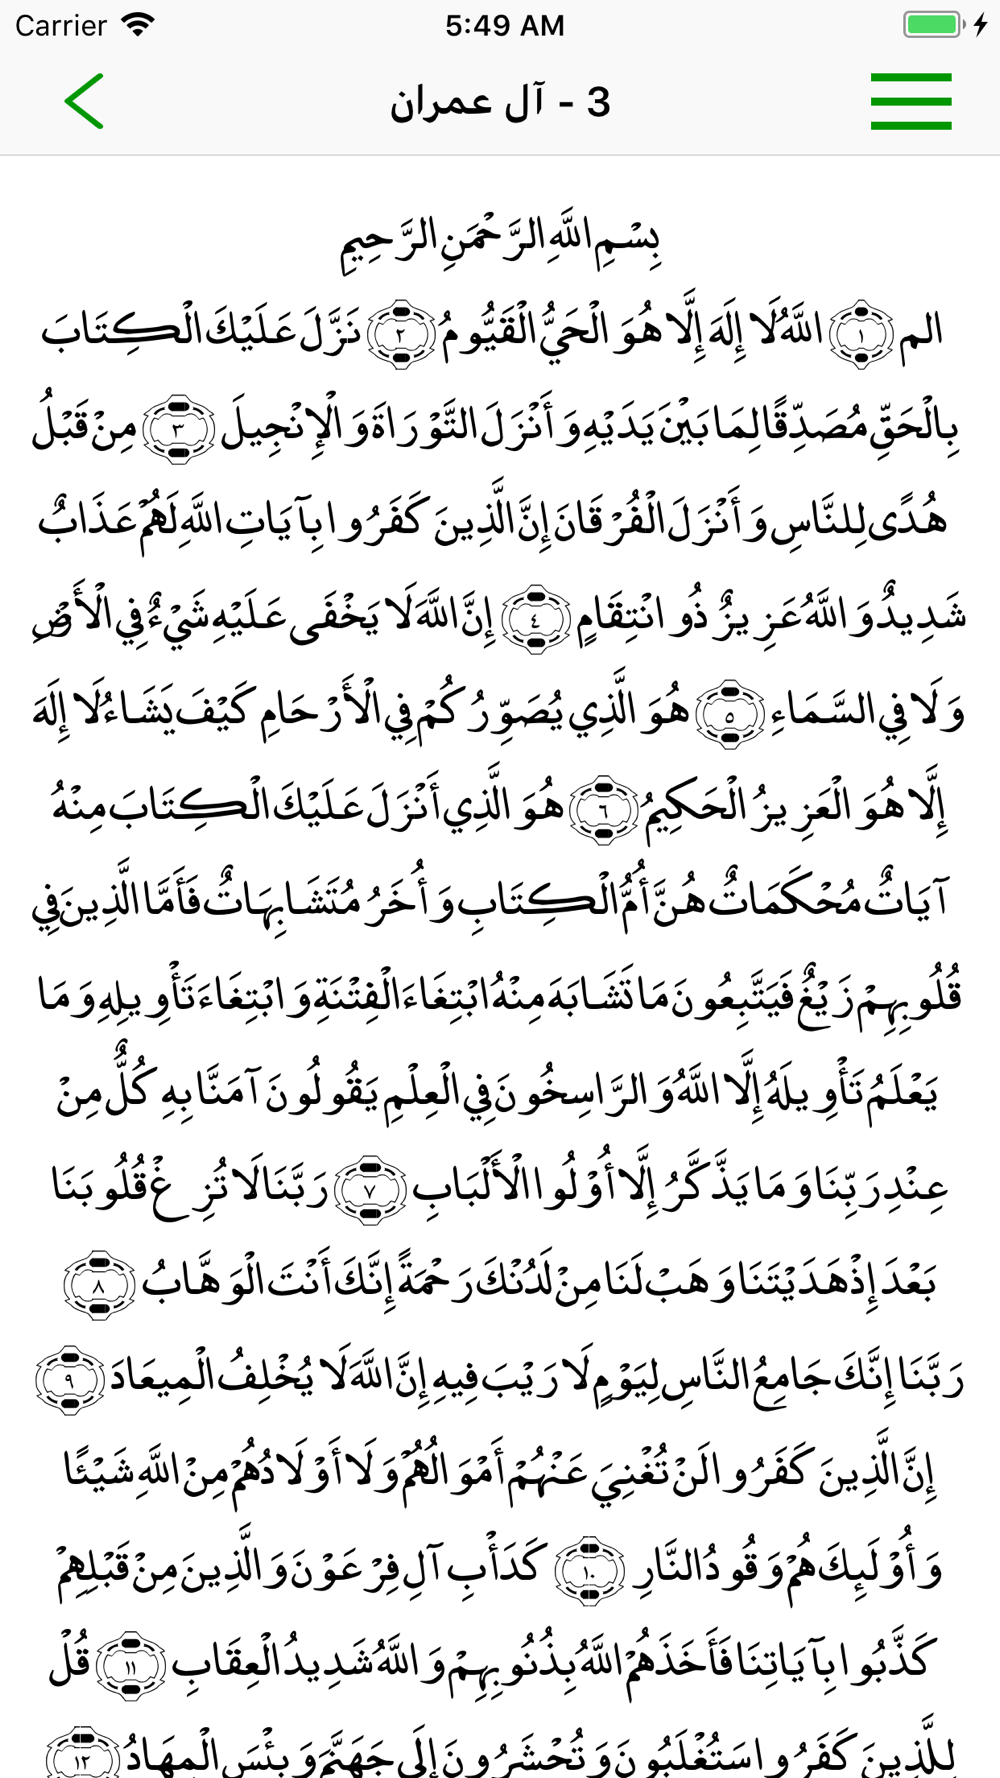 Carrier 5:49 AM
3 - آل عمران
بِسْمِ اللَّهِ الرَّحْمَنِ الرَّحِيمِ
الم ١ اللَّهُ لَا إِلَهَ إِلَّا هُوَ الْحَيُّ الْقَيُّومُ ٢ نَزَّلَ عَلَيْكَ الْكِتَابَ
بِالْحَقِّ مُصَدِّقًا لِمَا بَيْنَ يَدَيْهِ وَأَنْزَلَ التَّوْرَاةَ وَالْإِنْجِيلَ ٣ مِنْ قَبْلُ
هُدًى لِلنَّاسِ وَأَنْزَلَ الْفُرْقَانَ إِنَّ الَّذِينَ كَفَرُوا بِآيَاتِ اللَّهِ لَهُمْ عَذَابٌ
شَدِيدٌ وَاللَّهُ عَزِيزٌ ذُو انْتِقَامٍ ٤ إِنَّ اللَّهَ لَا يَخْفَى عَلَيْهِ شَيْءٌ فِي الْأَرْضِ
وَلَا فِي السَّمَاءِ ٥ هُوَ الَّذِي يُصَوِّرُكُمْ فِي الْأَرْحَامِ كَيْفَ يَشَاءُ لَا إِلَهَ
إِلَّا هُوَ الْعَزِيزُ الْحَكِيمُ ٦ هُوَ الَّذِي أَنْزَلَ عَلَيْكَ الْكِتَابَ مِنْهُ
آيَاتٌ مُحْكَمَاتٌ هُنَّ أُمُّ الْكِتَابِ وَأُخَرُ مُتَشَابِهَاتٌ فَأَمَّا الَّذِينَ فِي
قُلُوبِهِمْ زَيْغٌ فَيَتَّبِعُونَ مَا تَشَابَهَ مِنْهُ ابْتِغَاءَ الْفِتْنَةِ وَابْتِغَاءَ تَأْوِيلِهِ وَمَا
يَعْلَمُ تَأْوِيلَهُ إِلَّا اللَّهُ وَالرَّاسِخُونَ فِي الْعِلْمِ يَقُولُونَ آمَنَّا بِهِ كُلٌّ مِنْ
عِنْدِ رَبِّنَا وَمَا يَذَّكَّرُ إِلَّا أُوْلُوا الْأَلْبَابِ ٧ رَبَّنَا لَا تُزِغْ قُلُوبَنَا
بَعْدَ إِذْ هَدَيْتَنَا وَهَبْ لَنَا مِنْ لَدُنْكَ رَحْمَةً إِنَّكَ أَنْتَ الْوَهَّابُ ٨
رَبَّنَا إِنَّكَ جَامِعُ النَّاسِ لِيَوْمٍ لَا رَيْبَ فِيهِ إِنَّ اللَّهَ لَا يُخْلِفُ الْمِيعَادَ ٩
إِنَّ الَّذِينَ كَفَرُوا لَنْ تُغْنِيَ عَنْهُمْ أَمْوَالُهُمْ وَلَا أَوْلَادُهُمْ مِنْ اللَّهِ شَيْئًا
وَأُوْلَئِكَ هُمْ وَقُودُ النَّارِ ١٠ كَدَأْبِ آلِ فِرْعَوْنَ وَالَّذِينَ مِنْ قَبْلِهِمْ
كَذَّبُوا بِآيَاتِنَا فَأَخَذَهُمْ اللَّهُ بِذُنُوبِهِمْ وَاللَّهُ شَدِيدُ الْعِقَابِ ١١ قُلْ
لِلَّذِينَ كَفَرُوا سَتُغْلَبُونَ وَتُحْشَرُونَ إِلَى جَهَنَّمَ وَبِئْسَ الْمِهَادُ ١٢